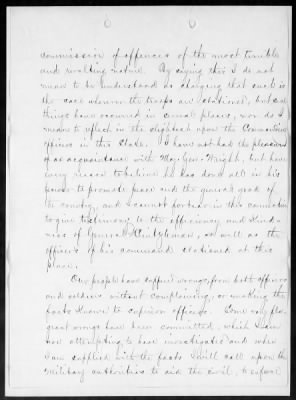 commission of offences of the most terrible
and revolting nature. By saying this I do not
mean to be understood as charging that such is
the case wherever the troops are stationed, but such
things have occurred in several places, nor do I
mean to reflect in the slightest upon the Commanding
officer in this State. I have not had the pleasure
of an acquaintance with Maj. Gen. Wright, but have
every reason to believe he has done all in his
power to promote peace and the general good of
the country, and I cannot forbear in this connection
to give testimony to the efficiency and kind-
ness of General Heintzelman, as well as the
officers of his command stationed at this
place.
Our people have suffered wrongs from both officers
and soldiers without complaining, or making the
facts known to superior officers. Some very fla-
grant wrongs have been committed, which I am
now attempting to have investigated and when
I am supplied with the facts I will call upon the
military authorities to aid the civil, to